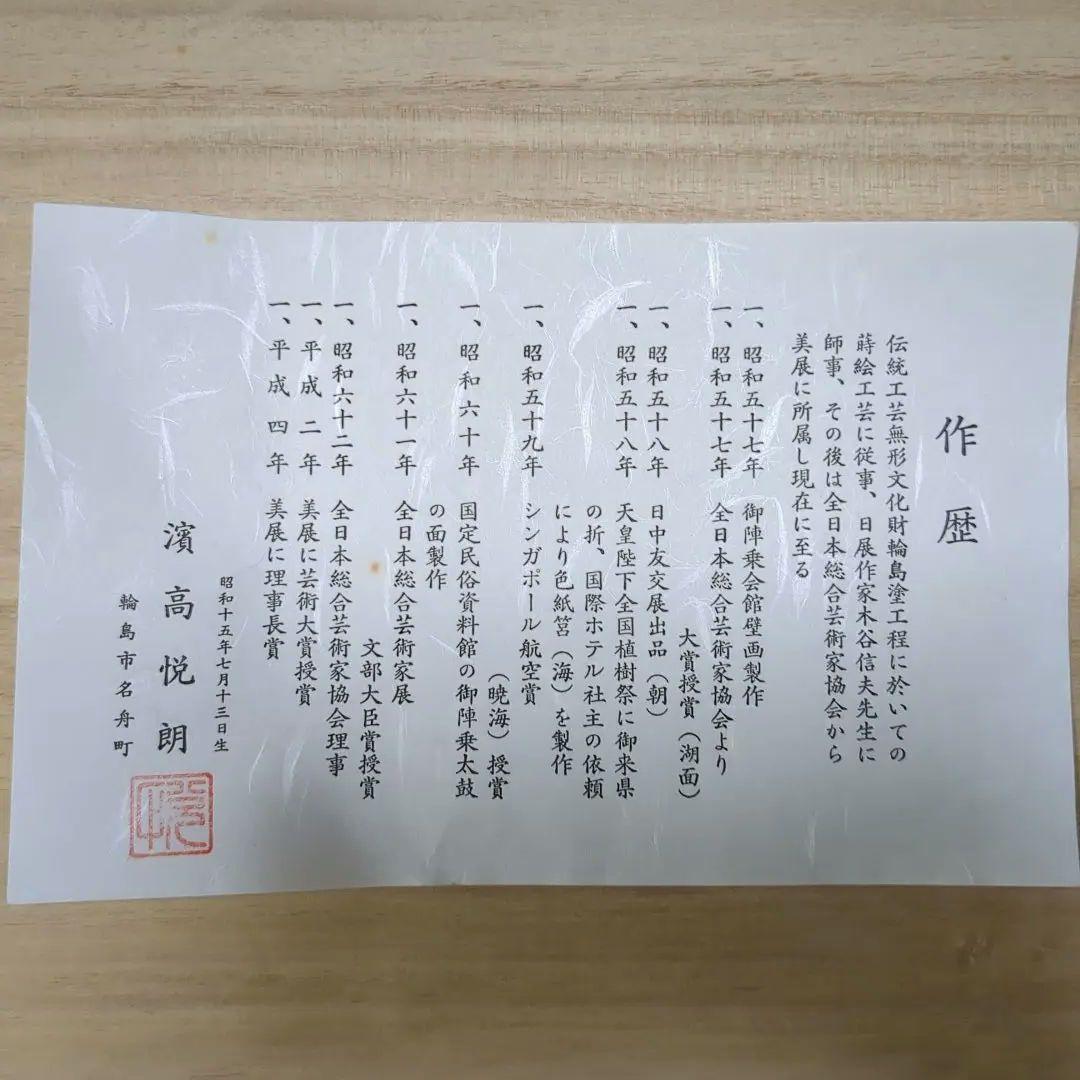 作歴
伝統工芸無形文化財輪島塗工程に於いての
蒔絵工芸に従事、日展作家木谷信夫先生に
師事、その後は全日本総合芸術家協会から
美展に所属し現在に至る
一、昭和五十七年 御陣乗会館壁画製作
一、昭和五十七年 全日本総合芸術家協会より
大賞授賞（湖面）
一、昭和五十八年 日中友交展出品（朝）
一、昭和五十八年 天皇陛下全国植樹祭に御来県
の折、国際ホテル社主の依頼
により色紙筥（海）を製作
一、昭和五十九年 シンガポール航空賞
（暁海）授賞
一、昭和六十年 国定民俗資料館の御陣乗太鼓
の面製作
一、昭和六十一年 全日本総合芸術家展
文部大臣賞授賞
一、昭和六十二年 全日本総合芸術家協会理事
一、平成二年 美展に芸術大賞授賞
一、平成四年 美展に理事長賞
昭和十五年七月十三日生
濱高悦朗
輪島市名舟町